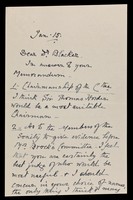 Jan. 15.
Dear Dr Blacker
In answer to your
Memorandum
1. Chairmanship of the C'ttee
I think Sir Thomas Horder
would be a most suitable
Chairman.
2. As to the Members of the
Society to give evidence before
the Brock Committee, I feel
that you are certainly the
best judge of who would be
most useful & I should
concur in your choice of
the only thing I think of